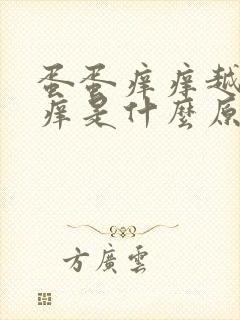 蛋蛋痒痒越
痒是什麼原
方廣雲